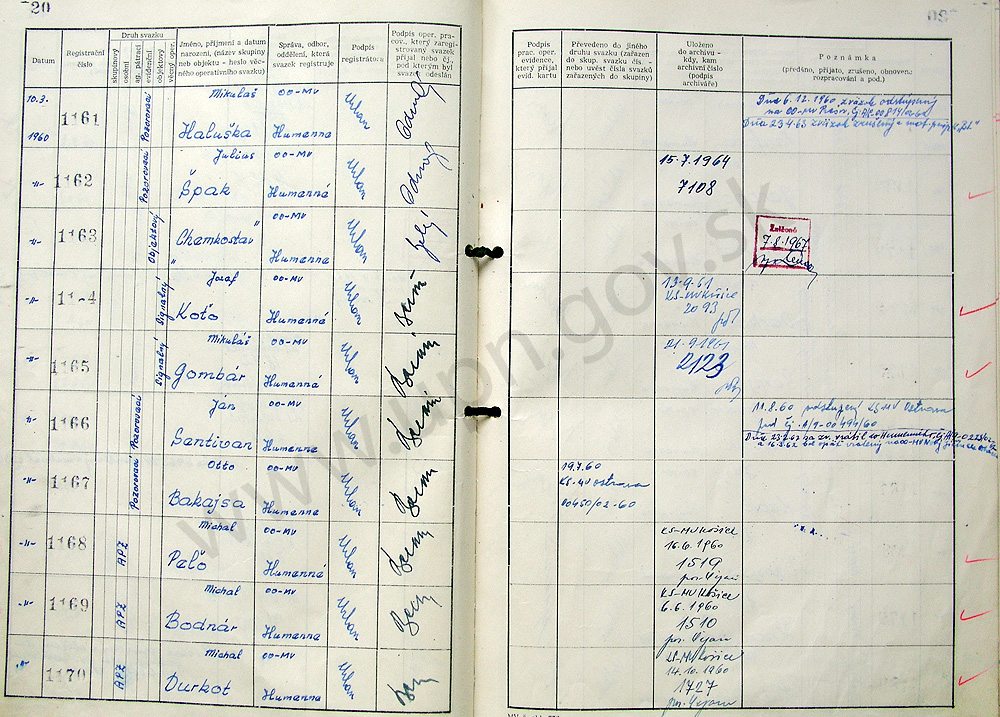 20
Datum
Registrační číslo
Druh svazku
skupinový
osobní
ag. pátrací
evidenční
objektový
věcný oper.
Jméno, příjmení a datum narození, (název skupiny neb objektu - heslo věcného operativního svazku)
Správa, odbor, oddělení, která svazek registruje
Podpis registrátora
Podpis oper. pracov., který zaregistrovaný svazek přijal nebo čj. pod kterým byl svazek odeslán
Podpis prac. oper. evidence, který přijal evid. kartu
Převedeno do jiného druhu svazku (zařazen do skup. svazku čís. - nebo uvést čísla svazků zařazených do skupiny)
Uloženo do archivu - kdy, kam archivní číslo (podpis archiváře)
Poznámka
(předáno, přijato, zrušeno, obnoveno rozpracování a pod.)
10.3. 1960
1161
Pozorovací
Mikuláš
Haluška
OO-MV
Humenné
Urban
Dňa 6.12.1960 zväzok odstúpený
-"-
1162
Pozorovací
Július
Špak
OO-MV
Humenné
Urban
15.7.1964
7108
-"-
1163
Objektový
"Chemkostav"
OO-MV
Humenné
Urban
Zničené
7.8.1967
-"-
11 4
Signalný
Jozef
Koťo
OO-MV
Humenné
Urban
13-9-61
KS-MV Košice
2093
-"-
1165
Signalný
Mikuláš
Gombár
OO-MV
Humenné
Urban
21-9-1961
2123
-"-
1166
Pozorovací
Ján
Santivan
OO-MV
Humenné
Urban
11.8.60 odstúpený KS-MV Ostrava
pod čj. A/9-00499/60
-"-
1167
Pozorovací
Otto
Bakajsa
OO-MV
Humenné
Urban
19.7.60
KS-MV Ostrava
00450/02-60
-"-
1168
APZ
Michal
Paľo
OO-MV
Humenné
Urban
KS-MV Košice
16.6.1960
1519
-"-
1169
APZ
Michal
Bodnár
OO-MV
Humenné
Urban
KS-MV Košice
6.6.1960
1510
-"-
1170
APZ
Michal
Durkot
OO-MV
Humenné
Urban
KS-MV Košice
14.10.1960
1727
www.upn.gov.sk